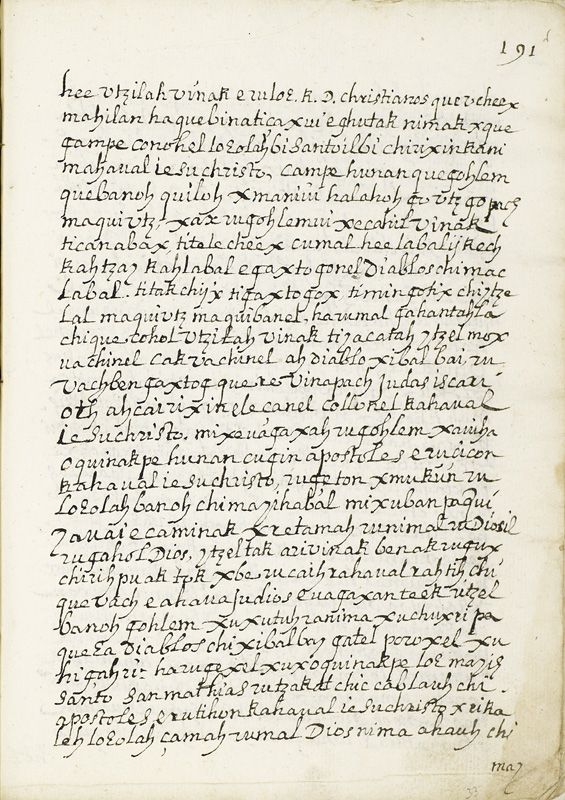 191
hee vtzilah vinak eruloε. k. D. christianos quevcheex
mahilan haquebinaticaxui eghutak nimak xque
campe conohel loεolah bi santoil bi chirixinkani
mahaual iesuchristo, campe hunan quegohlem
quebanoh quiloh xmaniui halahoh govtz go pach
maquivtz, xax rugohlemui xecahie vinak
ticanabax titelecheex cumal hee labalij kech
kahtzay kahlabal egaxtogonel Diablos chimac
labal. titakchijx tigaxtogox timingotix chiytze
lal maquivtz maquibanel, harumal gahantahla
chique cohol vtzilah vinak tiyacatah ytzel mox
vachinel cakvachinel ah diablo xibalbai, ru
vachben gaxtog quere vinapach Judas iscari
oth ahcairixin elecanel collonel kahaual
iesuchristo. mixevagaxah rugohlem xauiha
oquinakpe hunan cugin apostoles erucicon
kahaual iesuchristo, rugeton xmukun ru
loεolah banoh chimayihabal mixuban paqui
yauaie caminak xretamah runimal ru Diosil
rugahol Dios, ytzeltak arivinak benak rugux
chirih puak tok xbe rucaih rahaual rahtih chi
quevach eahaua Judios εuagaxanteek vtzel
banoh gohlem xuxutuh ranima xuchuxripe
queεa Diablos chixibalbay gatel poroxel xu
higahric harugexel xuxoquinakpe loε mayis
santo san mathias rutzakat chic cablauh chi
apostoles, erutihon kahaual iesuchristo xrika
leh loεolah çamah rumal Dios nima ahauh chi
may
33